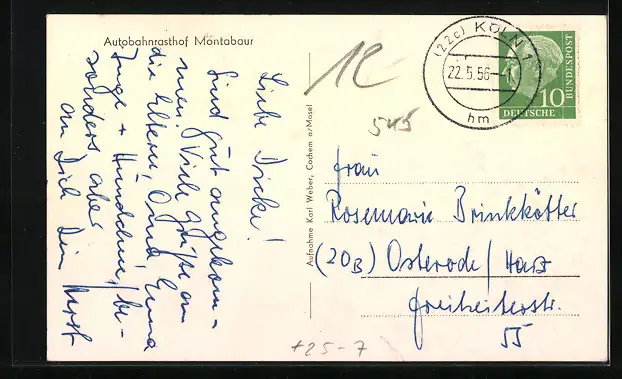 Autobahnrasthof Montabaur
Liebe Dicke!
Sind gut angekom-
men. Viele Grüße an
die Eltern, Oma, Erna
Inge + Hündchen, be-
sonders aber
an Dich Dein Horst
Aufnahme Karl Weber, Cochem a/Mosel
(22c) KÖLN 1
22.5.56-
hm
10
DEUTSCHE
BUNDESPOST
545
Frau
Rosemarie Brinkkötter
(20B) Osterode/Harz
Freiheiterstr.
55
+25-7